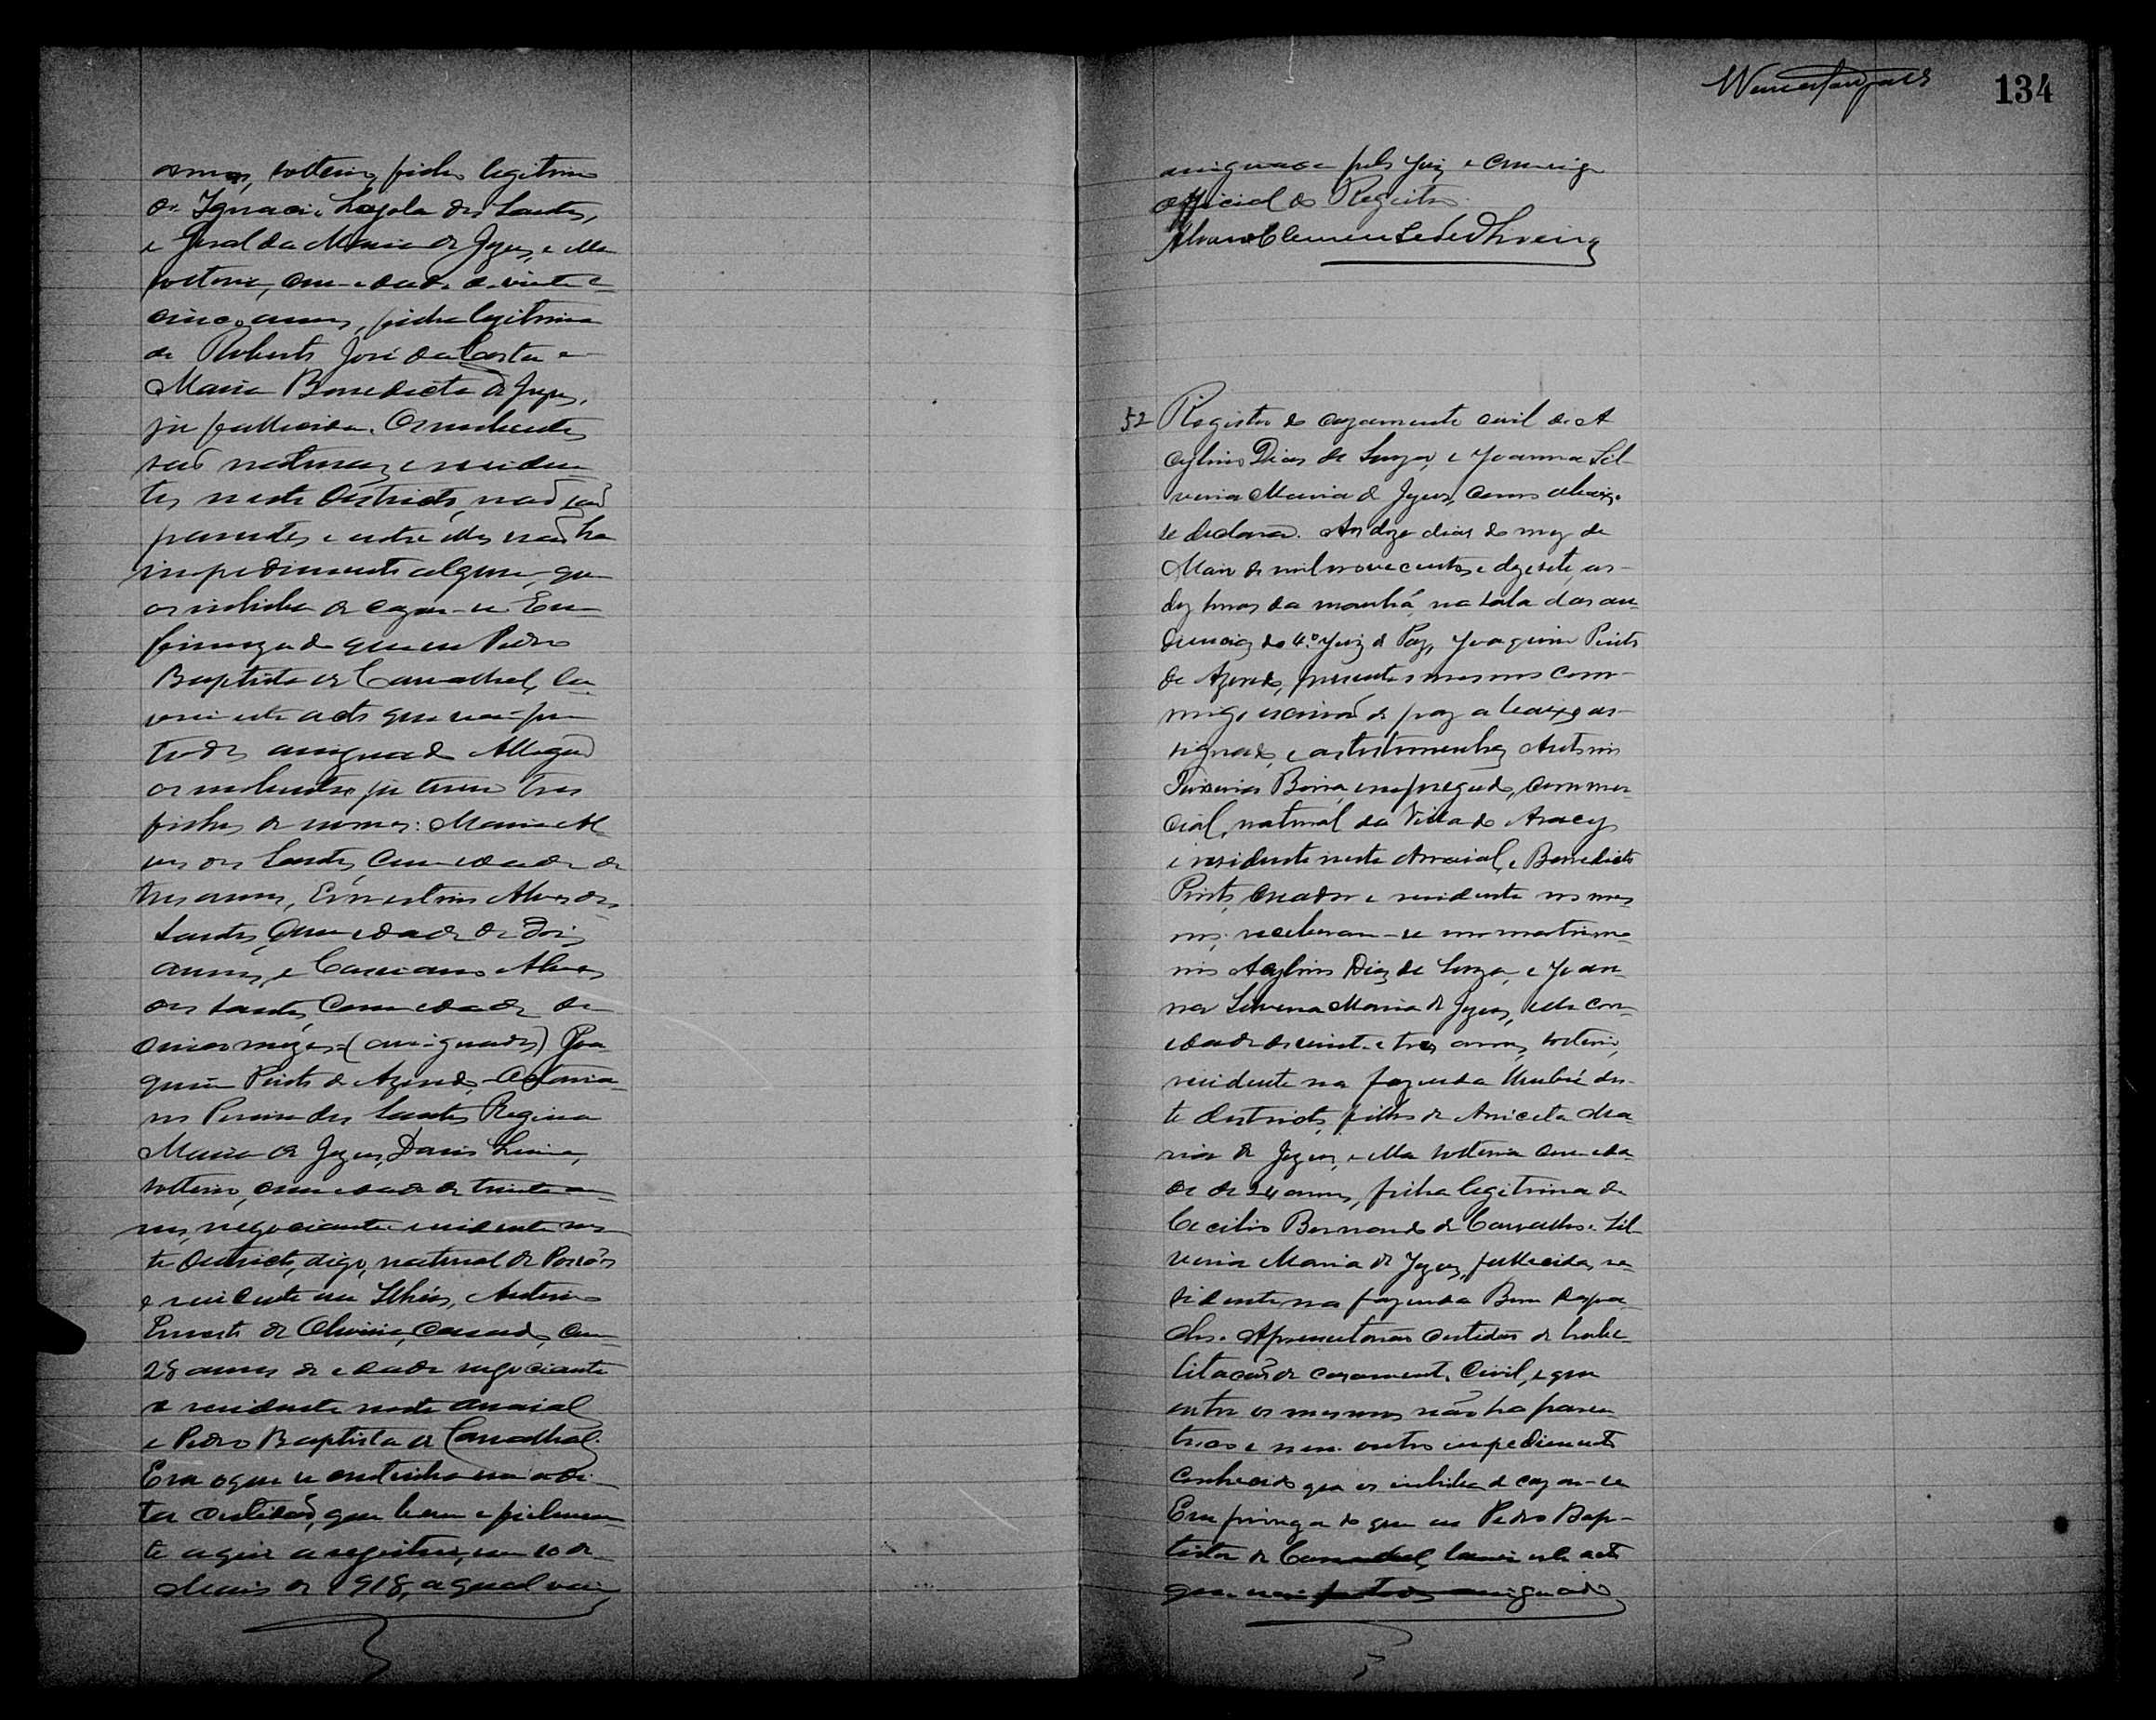 annos, solteiro, filho legitimo
de Ignacio Loyola dos Santos,
e Geralda Maria de Jezus, e ella
solteira, com edade de vinte e
cinco annos, filha legitima
de Roberto José da Costa e
Maria Benedicta de Jezus,
já fallecida. Os nubentes
são naturaes e residen
tes neste Districto, não são
parentes e entre elles não ha
impedimento algum que
os inhiba de cazar-se Em
firmeza do que eu Pedro
Baptista de Carvalhal, la
vrei este acto que vai por
todos assignado Allegão
os nubentes já terem tres
filhos de nomes: Maria Al
ves dos Santos, com edade de
tres annos, Ernestino Alves dos
Santos, com edade de dois
annos, e Cassiano Alves
dos Santos, com edade de
cinco mezes = (assignados) Joa
quim Pinto de Azevedo
Pereira dos Santos, Regina
Maria de Jezus,
solteiro, com edade de trinta an
nos, negociante residente nes
te Districto, digo, natural de Poções
e residente em Ilhéos, Antonio
Ernesto de Oliveira, casado, com
28 annos de edade negociante
e residente neste arraial
e Pedro Baptista de Carvalhal.
Era o que se continha na di
ta certidão, que bem e fielmen
te aqui a registrei, em 10 de
Maio de 1918, a qual vai
134
assignada pelo Juiz e commigo
official do Registro
Alvaro Clemente de Oliveira
52 Registro do cazamento civil de A
cylino Dias de Souza, e Joanna Sil
veria Maria de Jezus, como abaixo
se declara. Aos doze dias do mez de
Maio de mil novecentos e dezesete, as
dez horas da manhã, na sala das au
diencias do 4.º Juiz de Paz, Joaquim Pinto
de Azevedo, presente o mesmo com
migo escrivão de paz abaixo as
signado, e as testemunhas Antonio
empregado, commer
cial, natural da Villa do Aracy
e residente neste Arraial, e Benedicto
Pinto, creador e residente no mes
mo, receberam-se em matrimo
nio Acylino Dias de Souza, e Joan
na Silveria Maria de Jezus, elle com
edade de vinte e tres annos, solteiro,
residente na fazenda Umbú des
te Districto, filho de Aniceta Ma
ria de Jezus, e ella solteira com eda
de de 24 annos, filha legitima de
Cecilio Bernardo de Carvalho e Sil
veria Maria de Jezus, fallecida, re
sidente na fazenda Bom Despa
cho. Apresentarão certidão de habi
litação de casamento civil, e que
entre os mesmos não ha paren
tesco e nem outro impedimento
conhecido que os inhiba de cazar-se
Em firmeza do que eu Pedro Bap
tista de Carvalhal, lavrei este acto
que vai por todos assignado